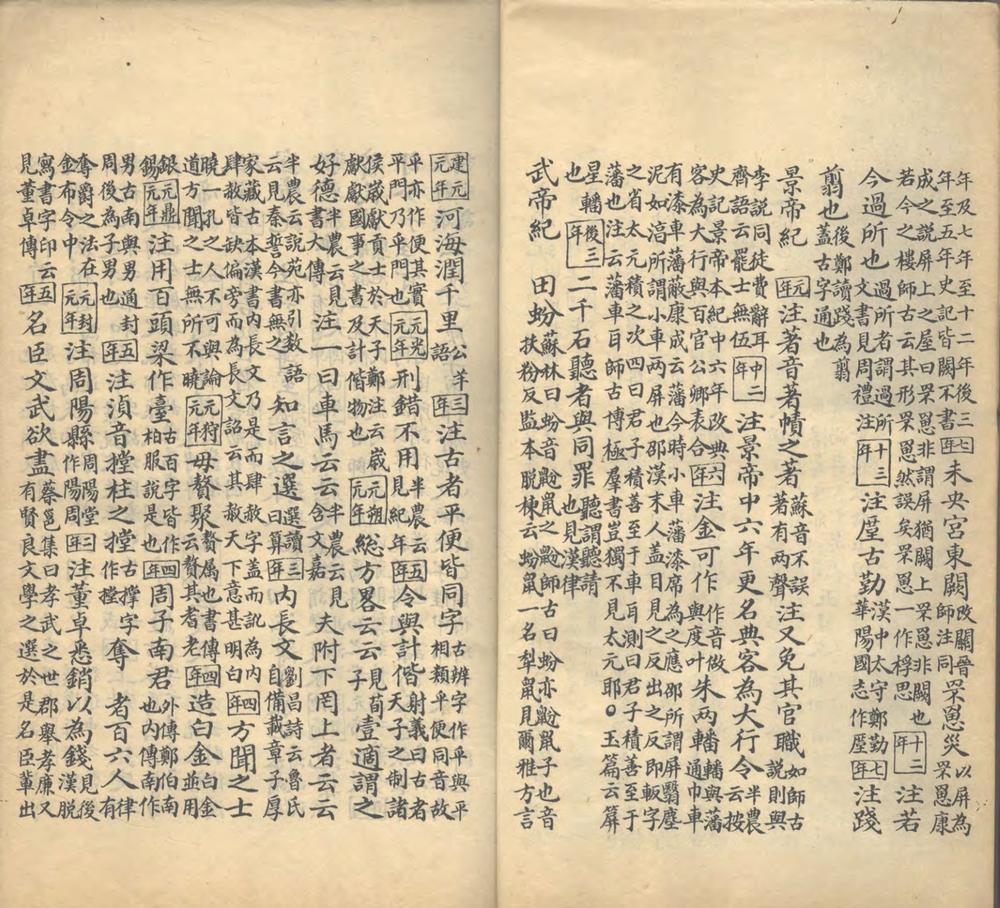 年及七年至十二年後三年年至五年史記皆闕不書七年未央宫東闕改闕晉師注同罘罳災以屏為罘罳康
成之說屏上之屋曰罘罳非謂屏猶闕上罘罳非闕也若今之樓師古云其形罘罳然誤矣罘罳一作桴思十二年注若
今過所也過所者謂過所文書見周禮注十三年注厔古勤漢中太守鄭勤華陽國志作厔七年注踐
翦也後鄭讀踐為翦蓋古字通也
景帝紀元年注著音著幘之著蘇音不誤著有兩聲注又免其官職如師古說則與
李說同徒費辭耳齊語云罷士無伍中二年注景帝中六年更名典客為大行令半農云按
史記景帝本紀中六年改典客為大行與百官公卿表合六年注金可作作音做與度叶朱兩轓轓與藩通巾車
有漆車藩蔽康成云藩今時小車藩漆席為之應邵所謂屏翳塵泥如湻所謂小車兩屏也邵漢末人蓋目見之反出之反即軬字
之省太元積之次四曰君子積善至于車耳測曰君子積善至于藩也注云藩車耳師古博極羣書豈獨不見太元耶○玉篇云屏
星轓也後三年二千石聽者與同罪聽謂聽請也見漢律
武帝紀 田蚡蘇林曰蚡音鼢鼠之鼢師古曰蚡亦鼢鼠子也音扶粉反監本脱棟云蚡鼠一名犁鼠見爾雅方言
建元元年河海潤千里公羊語三年注古者平便皆同字古辨字作平與平相類平便同音故
平亦作便其實平門乃平門也元光元年刑錯不用半農云見紀年五年令與計偕射義曰古者天子之制諸
侯歲獻貢士於天子鄭注云歲獻獻國事之書及計偕物也元朔元年緫方畧云云見荀子壹適謂之
好德半農云見書大傳注一曰車馬云云半農云見含文嘉夫附下罔上者云云
半農云說苑亦引數語云見秦誓今書無之知言之選選讀曰算三年內長文劉昌詩云魯氏自備載章子厚
家藏古本漢書內長文乃是而肆赦字蓋而訛為内肆赦皆缺偏旁而為長文詔云其赦天下意甚明白四年方聞之士
曉一孔之人不可與論道方聞之士無所不曉元狩元年毋贅聚贅属也書傳云贅其耆老四年造白金白金並用
銀錫元鼎元年注用百頭梁作臺古百字皆作柏服說是也四年周子南君外傳鄭伯南也内傳南作
男古南與男通封周後為子男也五年注湞音摚柱之摚古撑字作摚奪爵者百六人律有
奪爵之法在金布令中元封元年注周陽縣周陽堂作陽周三年注董卓悉銷以為錢見後漢脱
寫書字印云見董卓傳五年名臣文武欲盡蔡邕集曰孝武之世郡舉孝廉又有賢良文學之選於是名臣輩出